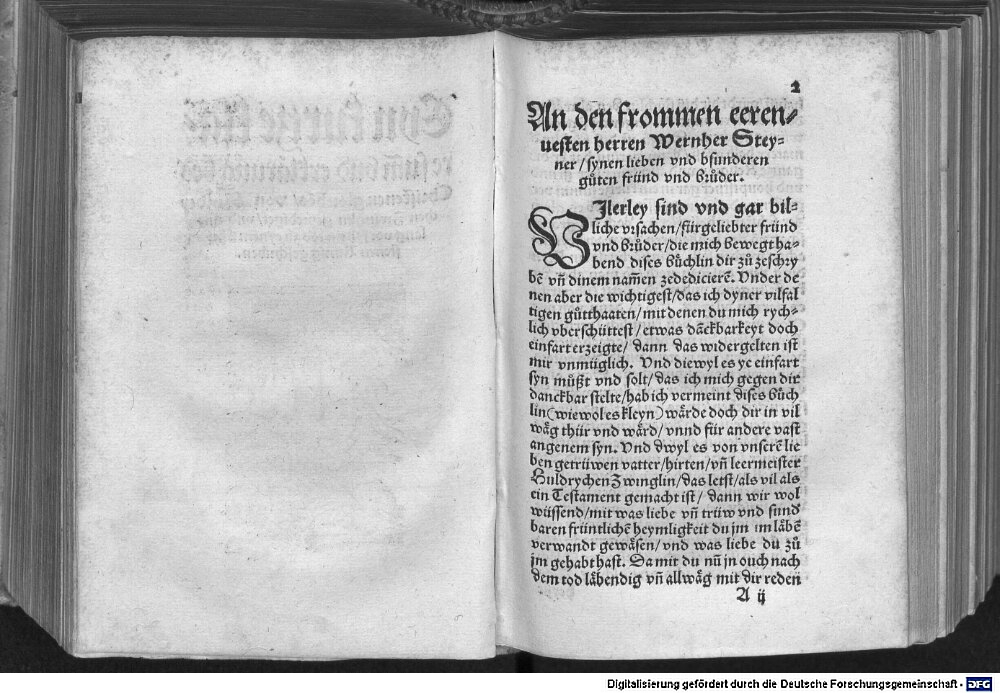 2
An den frommen eeren⸗
uesten herren Wernher Stey⸗
ner/synen lieben vnd bsunderen
gůten fründ vnd brůder.
VIlerley sind vnd gar bil⸗
liche vrsachen/fürgeliebter fründ
vnd brůder/die mich bewegt ha⸗
bend dises bůchlin dir zů zeschry
bē vñ dinem nam̄en zededicierē. Vnder de
nen aber die wichtigest/das ich dyner vilfal
tigen gůtthaaten/mit denen du mich rych⸗
lich vberschüttest/etwas dāckbarkeyt doch
einfart erzeigte/ dann das widergelten ist
mir vnmüglich. Vnd diewyl es ye einfart
syn můßt vnd solt/das ich mich gegen dir
danckbar stelte/hab ich vermeint dises bůch
lin(wiewol es kleyn) wårde doch dir in vil
wåg thür vnd wård/vnnd für andere vast
angenem syn. Vnd dwyl es von vnserē lie
ben getrüwen vatter/hirten/vñ leermeister
Huldrychen Zwinglin/das letst/als vil als
ein Testament gemacht ist/ dann wir wol
wüssend/mit was liebe vñ trüw vnd sund
baren früntlichē heymligkeit du jm im låbē
verwandt gewåsen/vnd was liebe du zů
jm gehabt hast. Da mit du nun̄ jn ouch nach
dem tod låbendig vñ allwåg mit dir reden
A ij
Digitalisierung gefördert durch die Deutsche Forschungsgemeinschaft - DFG